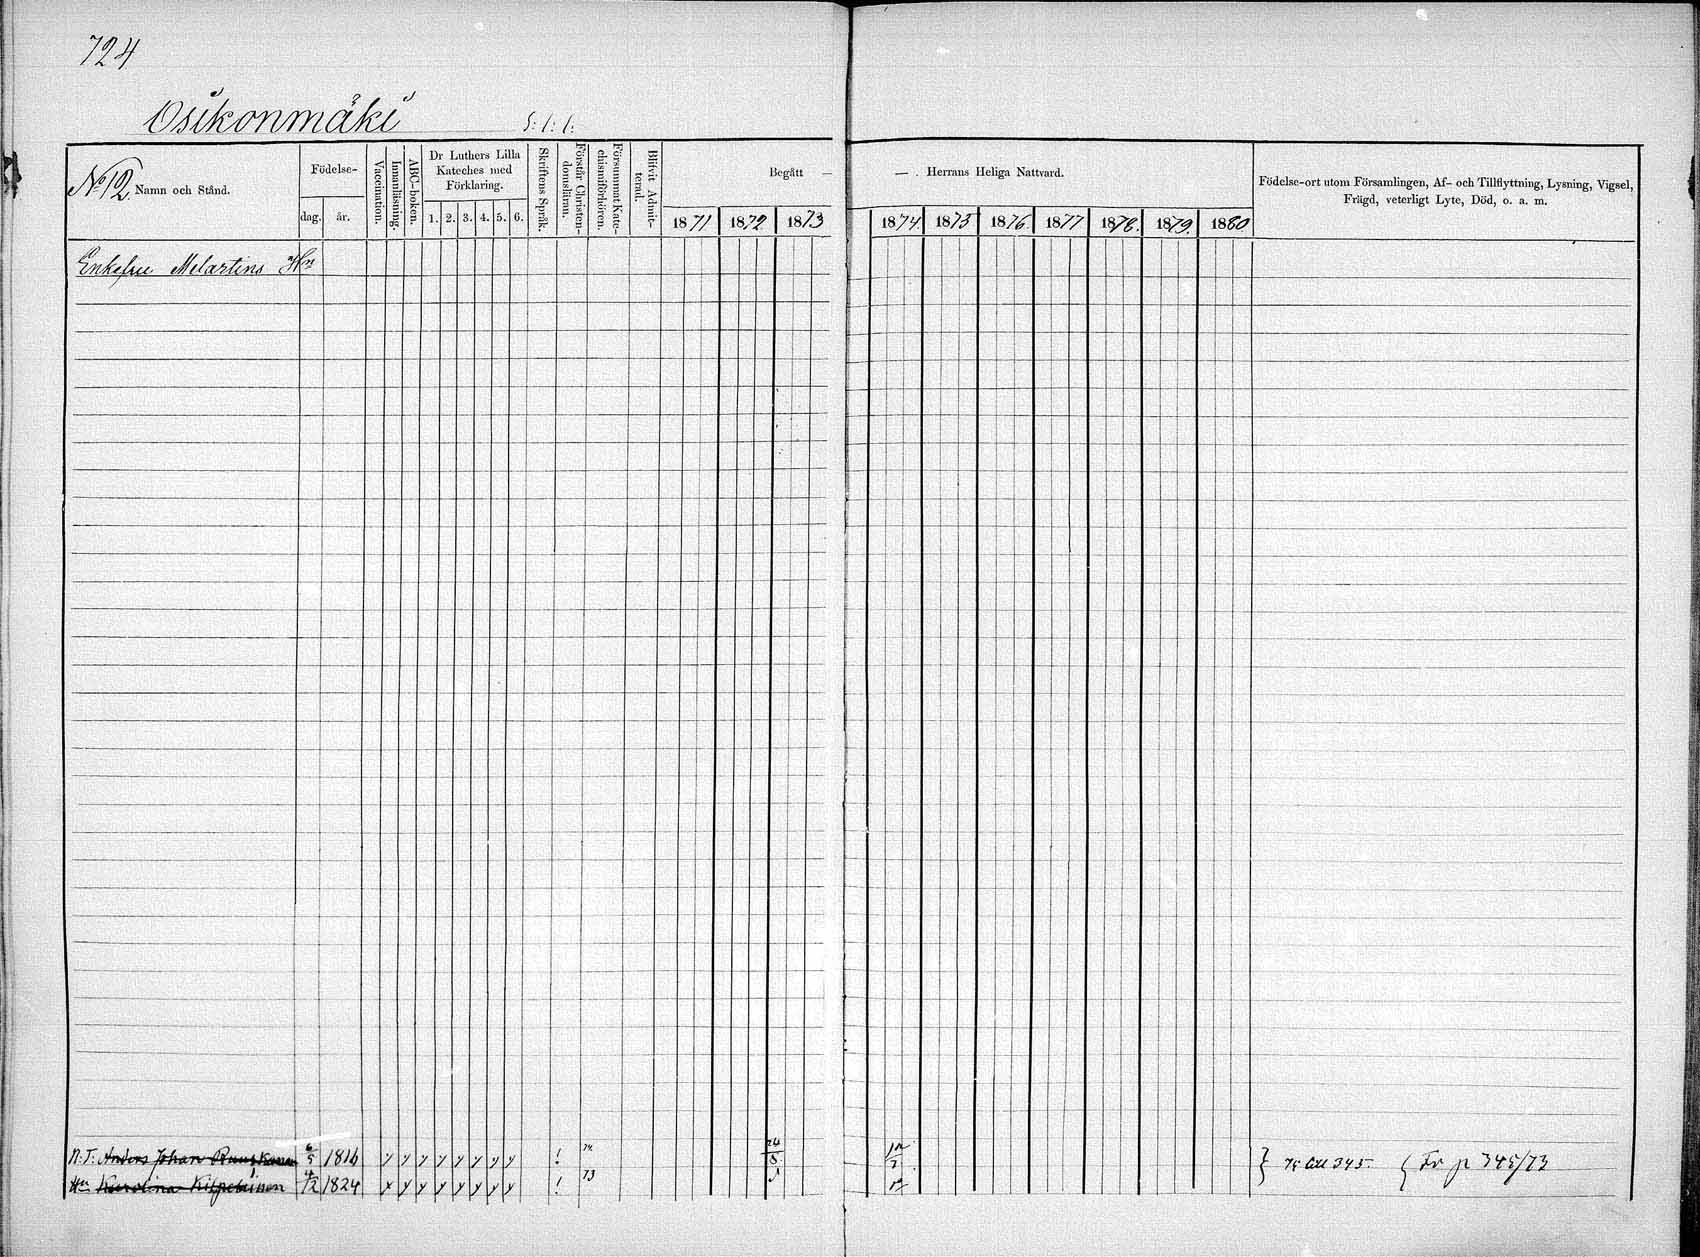 724
Osikonmäki
No 12. Namn och Stånd.
Födelse-
dag. år.
Vaccination.
Innanläsning.
ABC-boken.
Dr Luthers Lilla
Kateches med
Förklaring.
1. 2. 3. 4. 5. 6.
Skriftens Språk.
Förstår Christen-
domsläran.
Försummat Kate-
chismiförhören.
Blifvit Admit-
terad.
Begått —
1871 1872 1873
— . Herrans Heliga Nattvard.
1874. 1875 1876. 1877 1878. 1879. 1880
Födelse-ort utom Församlingen, Af- och Tillflyttning, Lysning, Vigsel,
Frägd, veterligt Lyte, Död, o. a. m.
Enkefru Melartins
N.T. Anders Johan 1816 y y y y y y y y ! 24/8
Karolina 1824 y y y y y y y y ! 73
Fr p 345/73